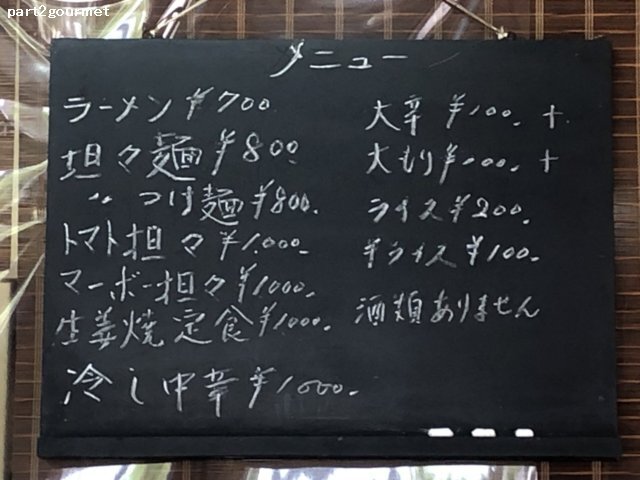 part2gourmet
メニュー
ラーメン ¥700
坦々麺 ¥800
〃 つけ麺 ¥800.
トマト坦々 ¥1,000.
マーボー坦々 ¥1000.
生姜焼定食 ¥1000.
冷し中華 ¥1000.
大辛 ¥100. +
大もり ¥100. +
ライス ¥200.
半ライス ¥100.
酒類ありません